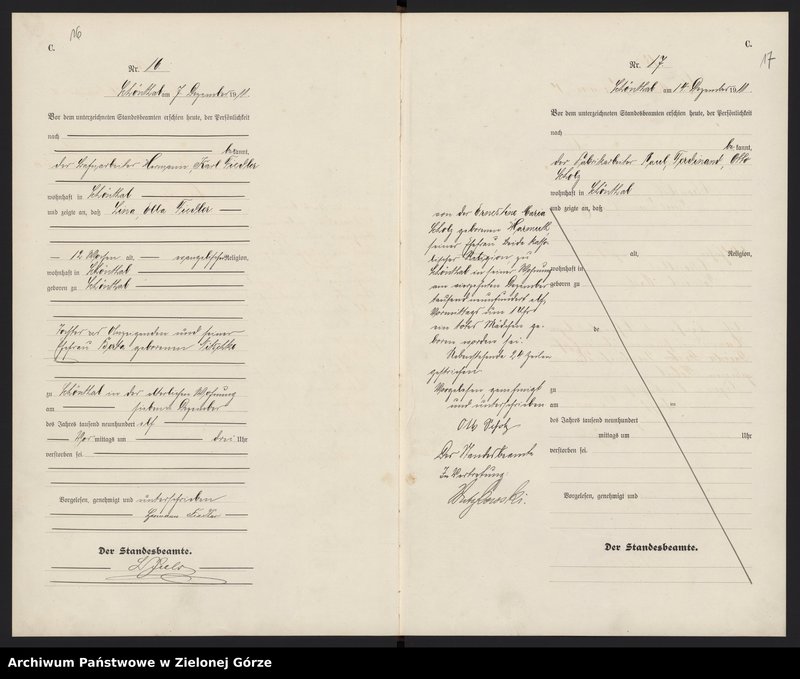 16
C.
Nr. 16
Schönthal am 7 Dezember 1911
Vor dem unterzeichneten Standesbeamten erschien heute, der Persönlichkeit
nach
bekannt,
der Hermann, Karl Fiedler
wohnhaft in Schönthal
und zeigte an, daß Lina, Otto Fiedler
12 Wochen alt, evangelischer Religion,
wohnhaft in Schönthal
geboren zu Schönthal
Tochter des Anzeigenden und seiner
Ehefrau Berta geborenen
zu Schönthal in der elterlichen Wohnung
am siebten Dezember
des Jahres tausend neunhundert elf
Vor mittags um drei Uhr
verstorben sei.
Vorgelesen, genehmigt und unterschrieben
Hermann Fiedler
Der Standesbeamte.
C.
17
Nr. 17
Schönthal am 14 Dezember 1911
Vor dem unterzeichneten Standesbeamten erschien heute, der Persönlichkeit
nach
bekannt,
der Fabrikarbeiter Paul, Ferdinand, Otto
Scholz
wohnhaft in Schönthal
und zeigte an, daß
von der Ernestine Maria
Scholz geborenen
seiner Ehefrau beide katho-
lischer Religion zu
Schönthal in seiner Wohnung
am vierzehnten Dezember
tausend neunhundert elf
Vormittags um 1 Uhr
ein totes Mädchen ge-
boren worden sei.
Nebenstehende 24 Zeilen
gestrichen
Vorgelesen genehmigt
und unterschrieben
Otto Scholz
Der Standesbeamte
In Vertretung:
alt, Religion,
wohnhaft in
geboren zu
de
zu
am in
des Jahres tausend neunhundert
mittags um Uhr
verstorben sei.
Vorgelesen, genehmigt und
Der Standesbeamte.
Archiwum Państwowe w Zielonej Górze